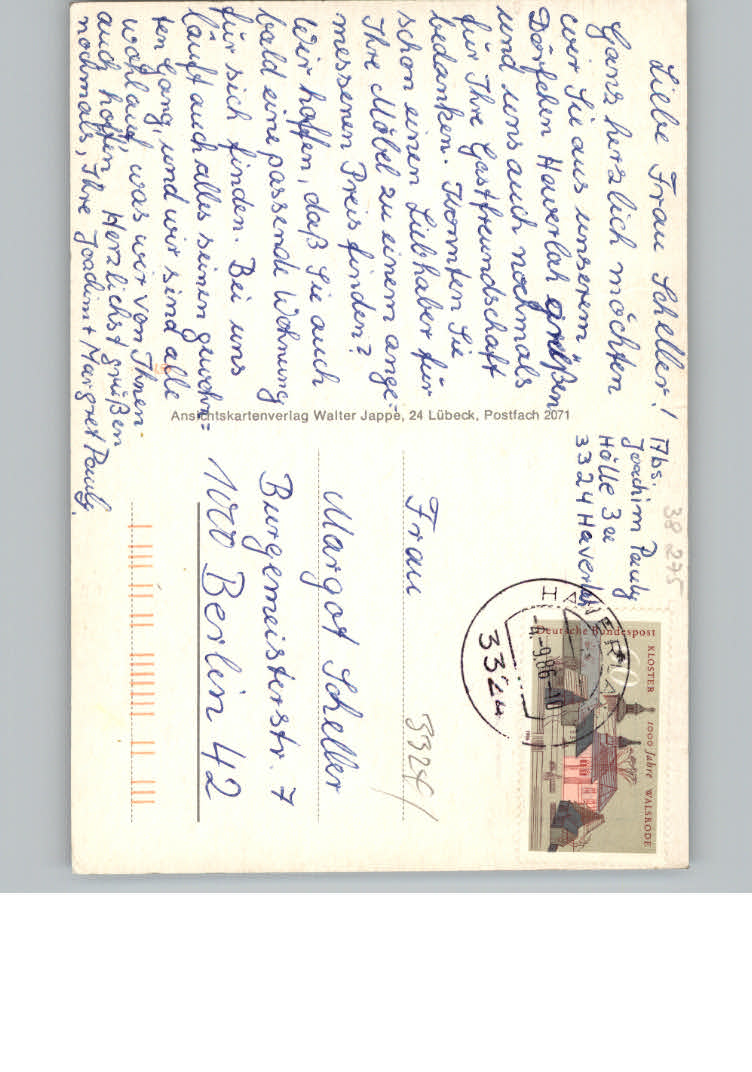 Liebe Frau Scheller!
Ganz herzlich möchten
wir Sie aus unserem
Dörfchen Haverlah grüßen
und uns auch nochmals
für Ihre Gastfreundschaft
bedanken. Konnten Sie
schon einen Liebhaber für
Ihre Möbel zu einem ange-
messenen Preis finden?
Wir hoffen, daß Sie auch
bald eine passende Wohnung
für sich finden. Bei uns
läuft auch alles seinen gewohn=
ten Gang, und wir sind alle
wohlauf, was wir von Ihnen
auch hoffen. Herzlichst grüßen
nochmals, Ihre Joachim + Margret Pauly.
Ansichtskartenverlag Walter Jappe, 24 Lübeck, Postfach 2071
38 275
Abs.
Joachim Pauly
Hölle 3a
3324 Haverlah
HAVERLAH
-4.-9.86-10
3324
Deutsche Bundespost
60
KLOSTER 1000 Jahre WALSRODE
Frau
3324/
Margot Scheller
Burgemeisterstr. 7
1000 Berlin 42